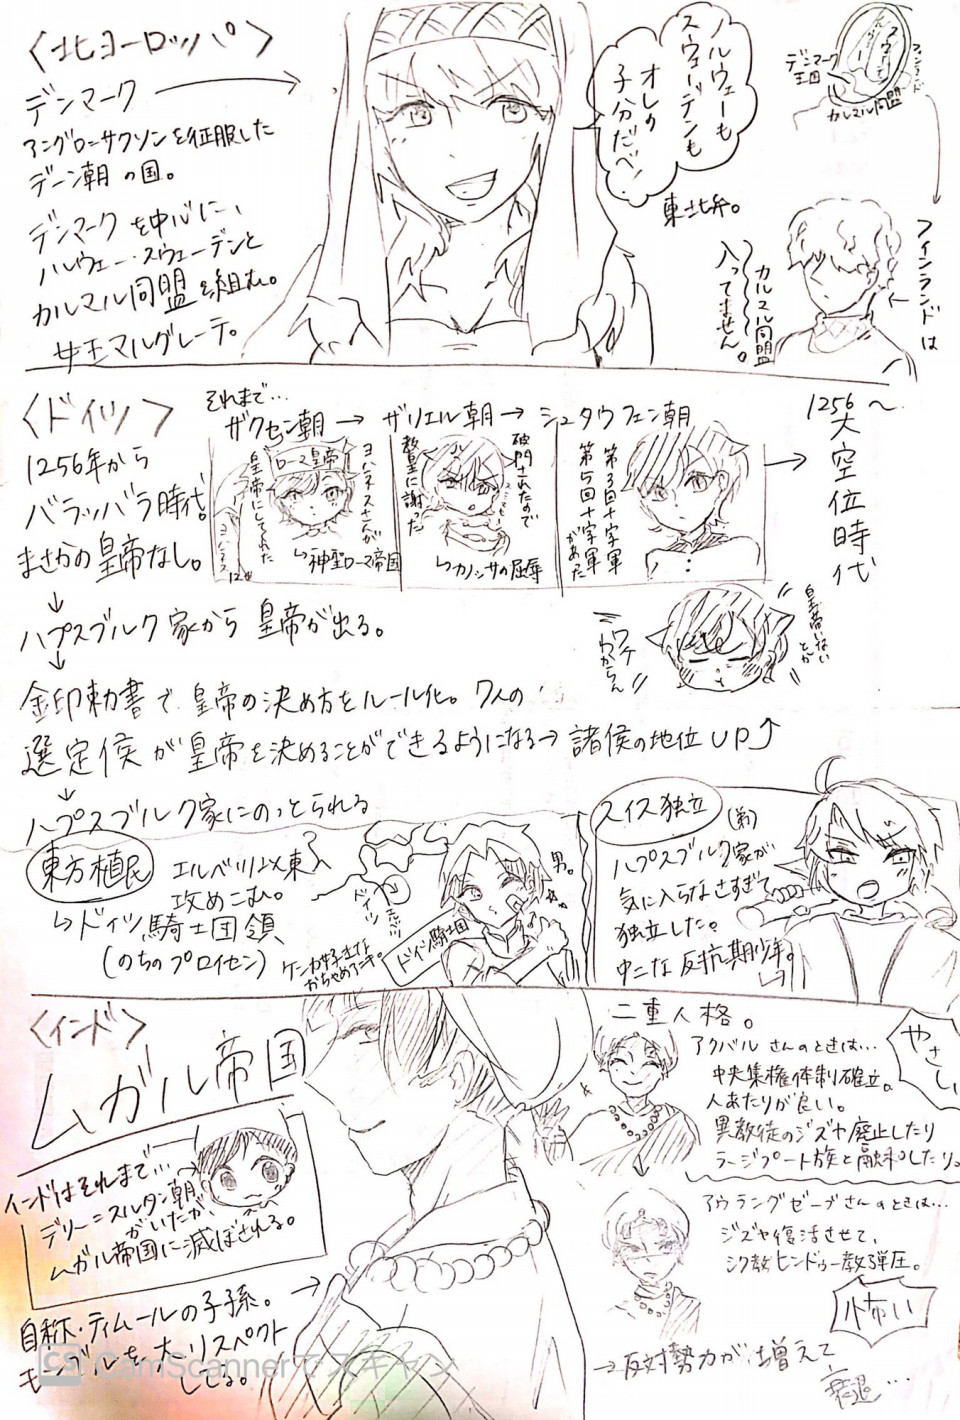 〈北ヨーロッパ〉
デンマーク
アングローサクソンを征服した
デーン朝の国。
デンマークを中心に、
ノルウェー・スウェーデンと
カルマル同盟を組む。
女王マルグレーテ。
ノルウェーも
スウェーデンも
オレの
子分だべ!
東北弁。
デンマーク
王国
フィンランド
カルマル同盟
フィンランドは
カルマル同盟
入ってません。
〈ドイツ〉
1256年から
バラッバラ時代。
まさかの皇帝なし。
それまで…
ザクセン朝→ザリエル朝→シュタウフェン朝
ローマ皇帝
ヨハネスさんが
皇帝にしてくれた
ヨハネス
12世
↳神聖ローマ帝国
破門されたので
教皇に謝った
↳カノッサの屈辱
第3回十字軍
第5回十字軍
があった
1256〜
大空位時代
皇帝いない
とか
ワケ
わからん
↓
ハプスブルク家から皇帝が出る。
↓
金印勅書で皇帝の決め方をルール化。7人の
選定侯が皇帝を決めることができるようになる→諸侯の地位UP↑
↓
ハプスブルク家にのっとられる
東方植民
エルベ川以東へ
攻めこむ。
↳ドイツ騎士団領
(のちのプロイセン)
ドイツ
ドイツ騎士団
男。
ケンカ好きな
スイス独立
ハプスブルク家が
気に入らなさすぎて
独立した。
中二な反抗期少年。
〈インド〉
ムガル帝国
インドはそれまで…
デリー=スルタン朝
がいたが、
ムガル帝国に滅ぼされる。
自称・ティムールの子孫。
モンゴルを大リスペクト
してる。
二重人格。
アクバルさんのときは…
中央集権体制確立。
人あたりが良い。
異教徒のジズヤ廃止したり
ラージプート族と融和したり。
やさしい
アウラングゼーブさんのときは…
ジズヤ復活させて、
シク教ヒンドゥー教弾圧。
怖い
→反対勢力が増えて
衰退…
CS CamScannerでスキャン